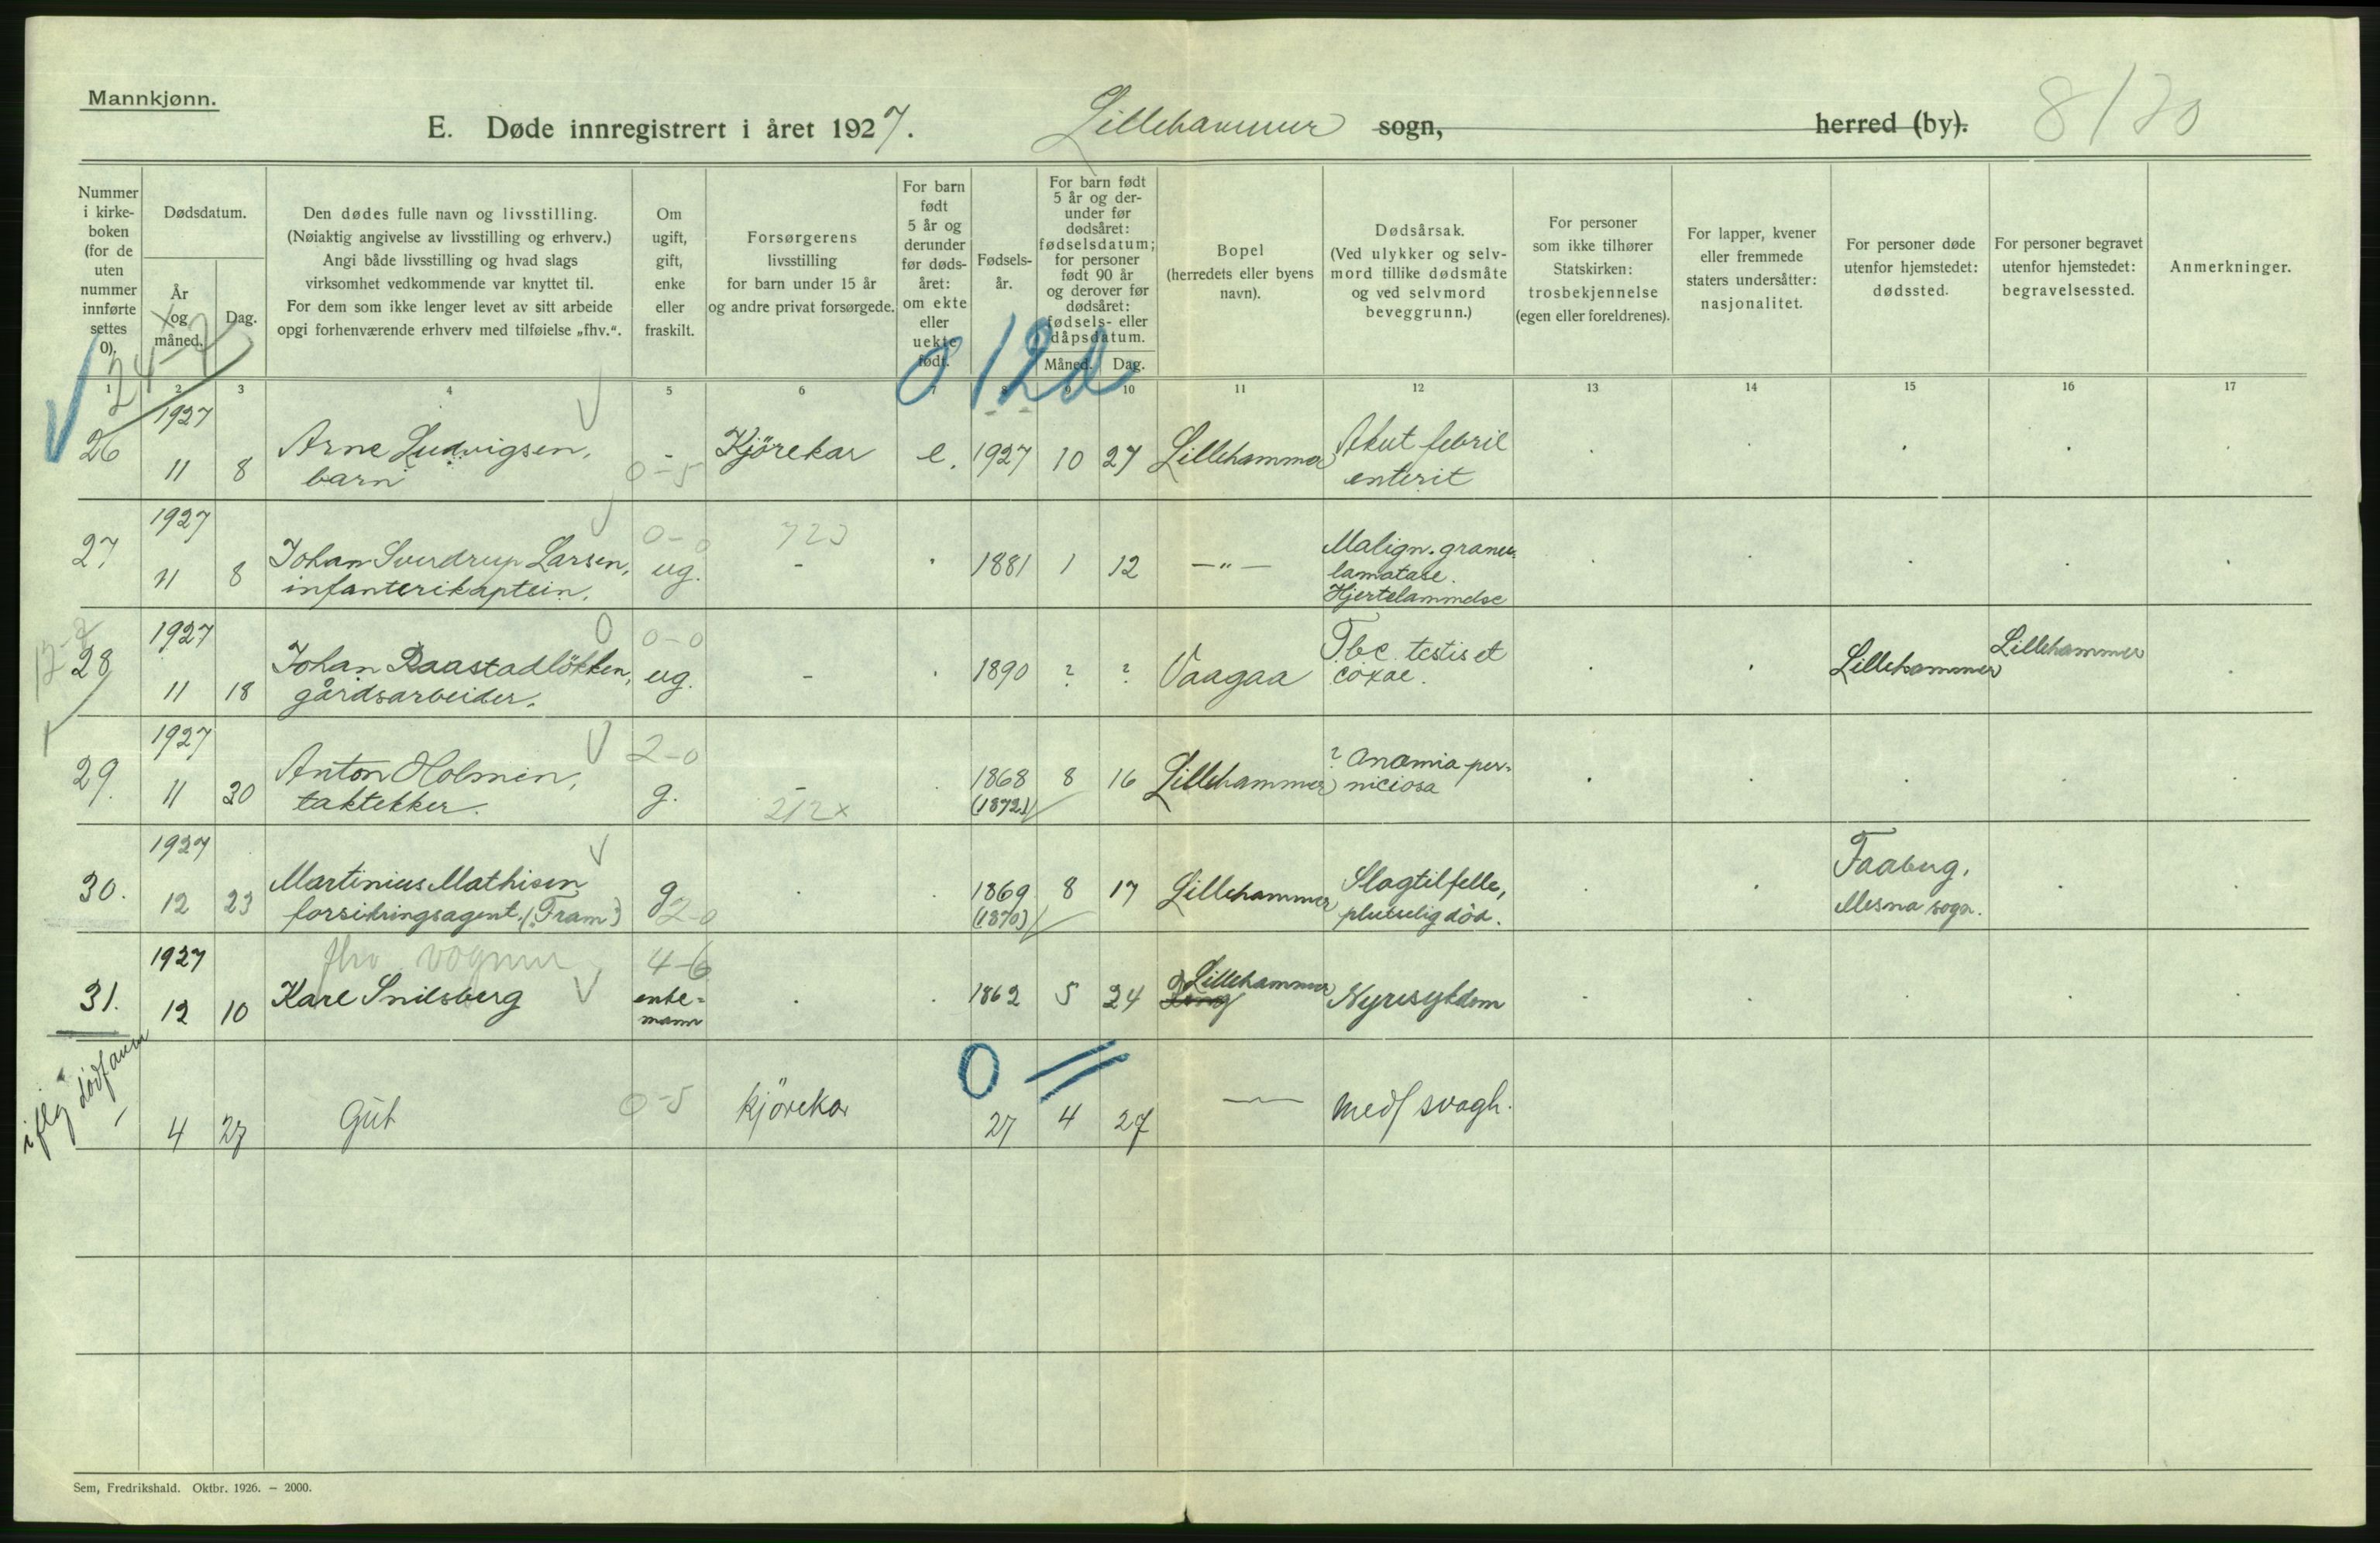 Mannkjønn.
E. Døde innregistrert i året 1927. Lillehammer sogn, herred (by). 8/20
Nummer i kirkeboken (for de uten nummer innførte settes 0).
Dødsdatum.
År og måned.
Dag.
Den dødes fulle navn og livsstilling.
(Nøiaktig angivelse av livsstilling og erhverv.)
Angi både livsstilling og hvad slags
virksomhet vedkommende var knyttet til.
For dem som ikke lenger levet av sitt arbeide
opgi forhenværende erhverv med tilføielse „fhv.“.
Om ugift, gift, enke eller fraskilt.
Forsørgerens
livsstilling
for barn under 15 år
og andre privat forsørgede.
For barn født 5 år og derunder før dødsåret: om ekte eller uekte født.
Fødselsår.
For barn født 5 år og derunder før dødsåret: fødselsdatum; for personer født 90 år og derover før dødsåret: fødsels- eller dåpsdatum.
Måned. Dag.
Bopel
(herredets eller byens
navn).
Dødsårsak.
(Ved ulykker og selvmord tillike dødsmåte
og ved selvmord
beveggrunn.)
For personer
som ikke tilhører
Statskirken:
trosbekjennelse
(egen eller foreldrenes).
For lapper, kvener
eller fremmede
staters undersåtter:
nasjonalitet.
For personer døde
utenfor hjemstedet:
dødssted.
For personer begravet
utenfor hjemstedet:
begravelsessted.
Anmerkninger.
0/2d
1 2 3 4 5 6 7 8 9 10 11 12 13 14 15 16 17
26 1927 11 8 Arne Ludvigsen, barn - 0-5 Kjörekar e. 1927 10 27 Lillehammer Akut febril enterit
27 1927 11 8 Johan Sverdrup Larsen, infanterikaptein. 0-0 ug. 723 - 1881 1 12 —„— Malign. granulamatase. Hjertelammelse
28 1927 11 18 Johan Raastadløkken, gårdsarbeider. 0-0 ug. - 1890 ? ? Vaagaa Tbc. testis et coxae. Lillehammer Lillehammer
29. 1927 11 20 Anton Holmen, taktekker. 2-0 g. - 212x 1868 (1872) 8 16 Lillehammer ? Anæmia perniciosa
30. 1927 12 23 Martinius Mathisen forsikringsagent. (Fram) g 2-0 1869 (1870) 8 17 Lillehammer Slagtilfelle, plutselig død. Faaberg, Mesna sogn.
31. 1927 12 10 fhv vogner Karl Snilsberg 4-6 enkemann 1862 5 24 Lillehammer Nyresykdom
0 =
iflg dødfanm 4 27 Gut 0-5 kjörekar 27 4 27 — medf svagh.
Sem, Fredrikshald. Oktbr. 1926. – 2000.